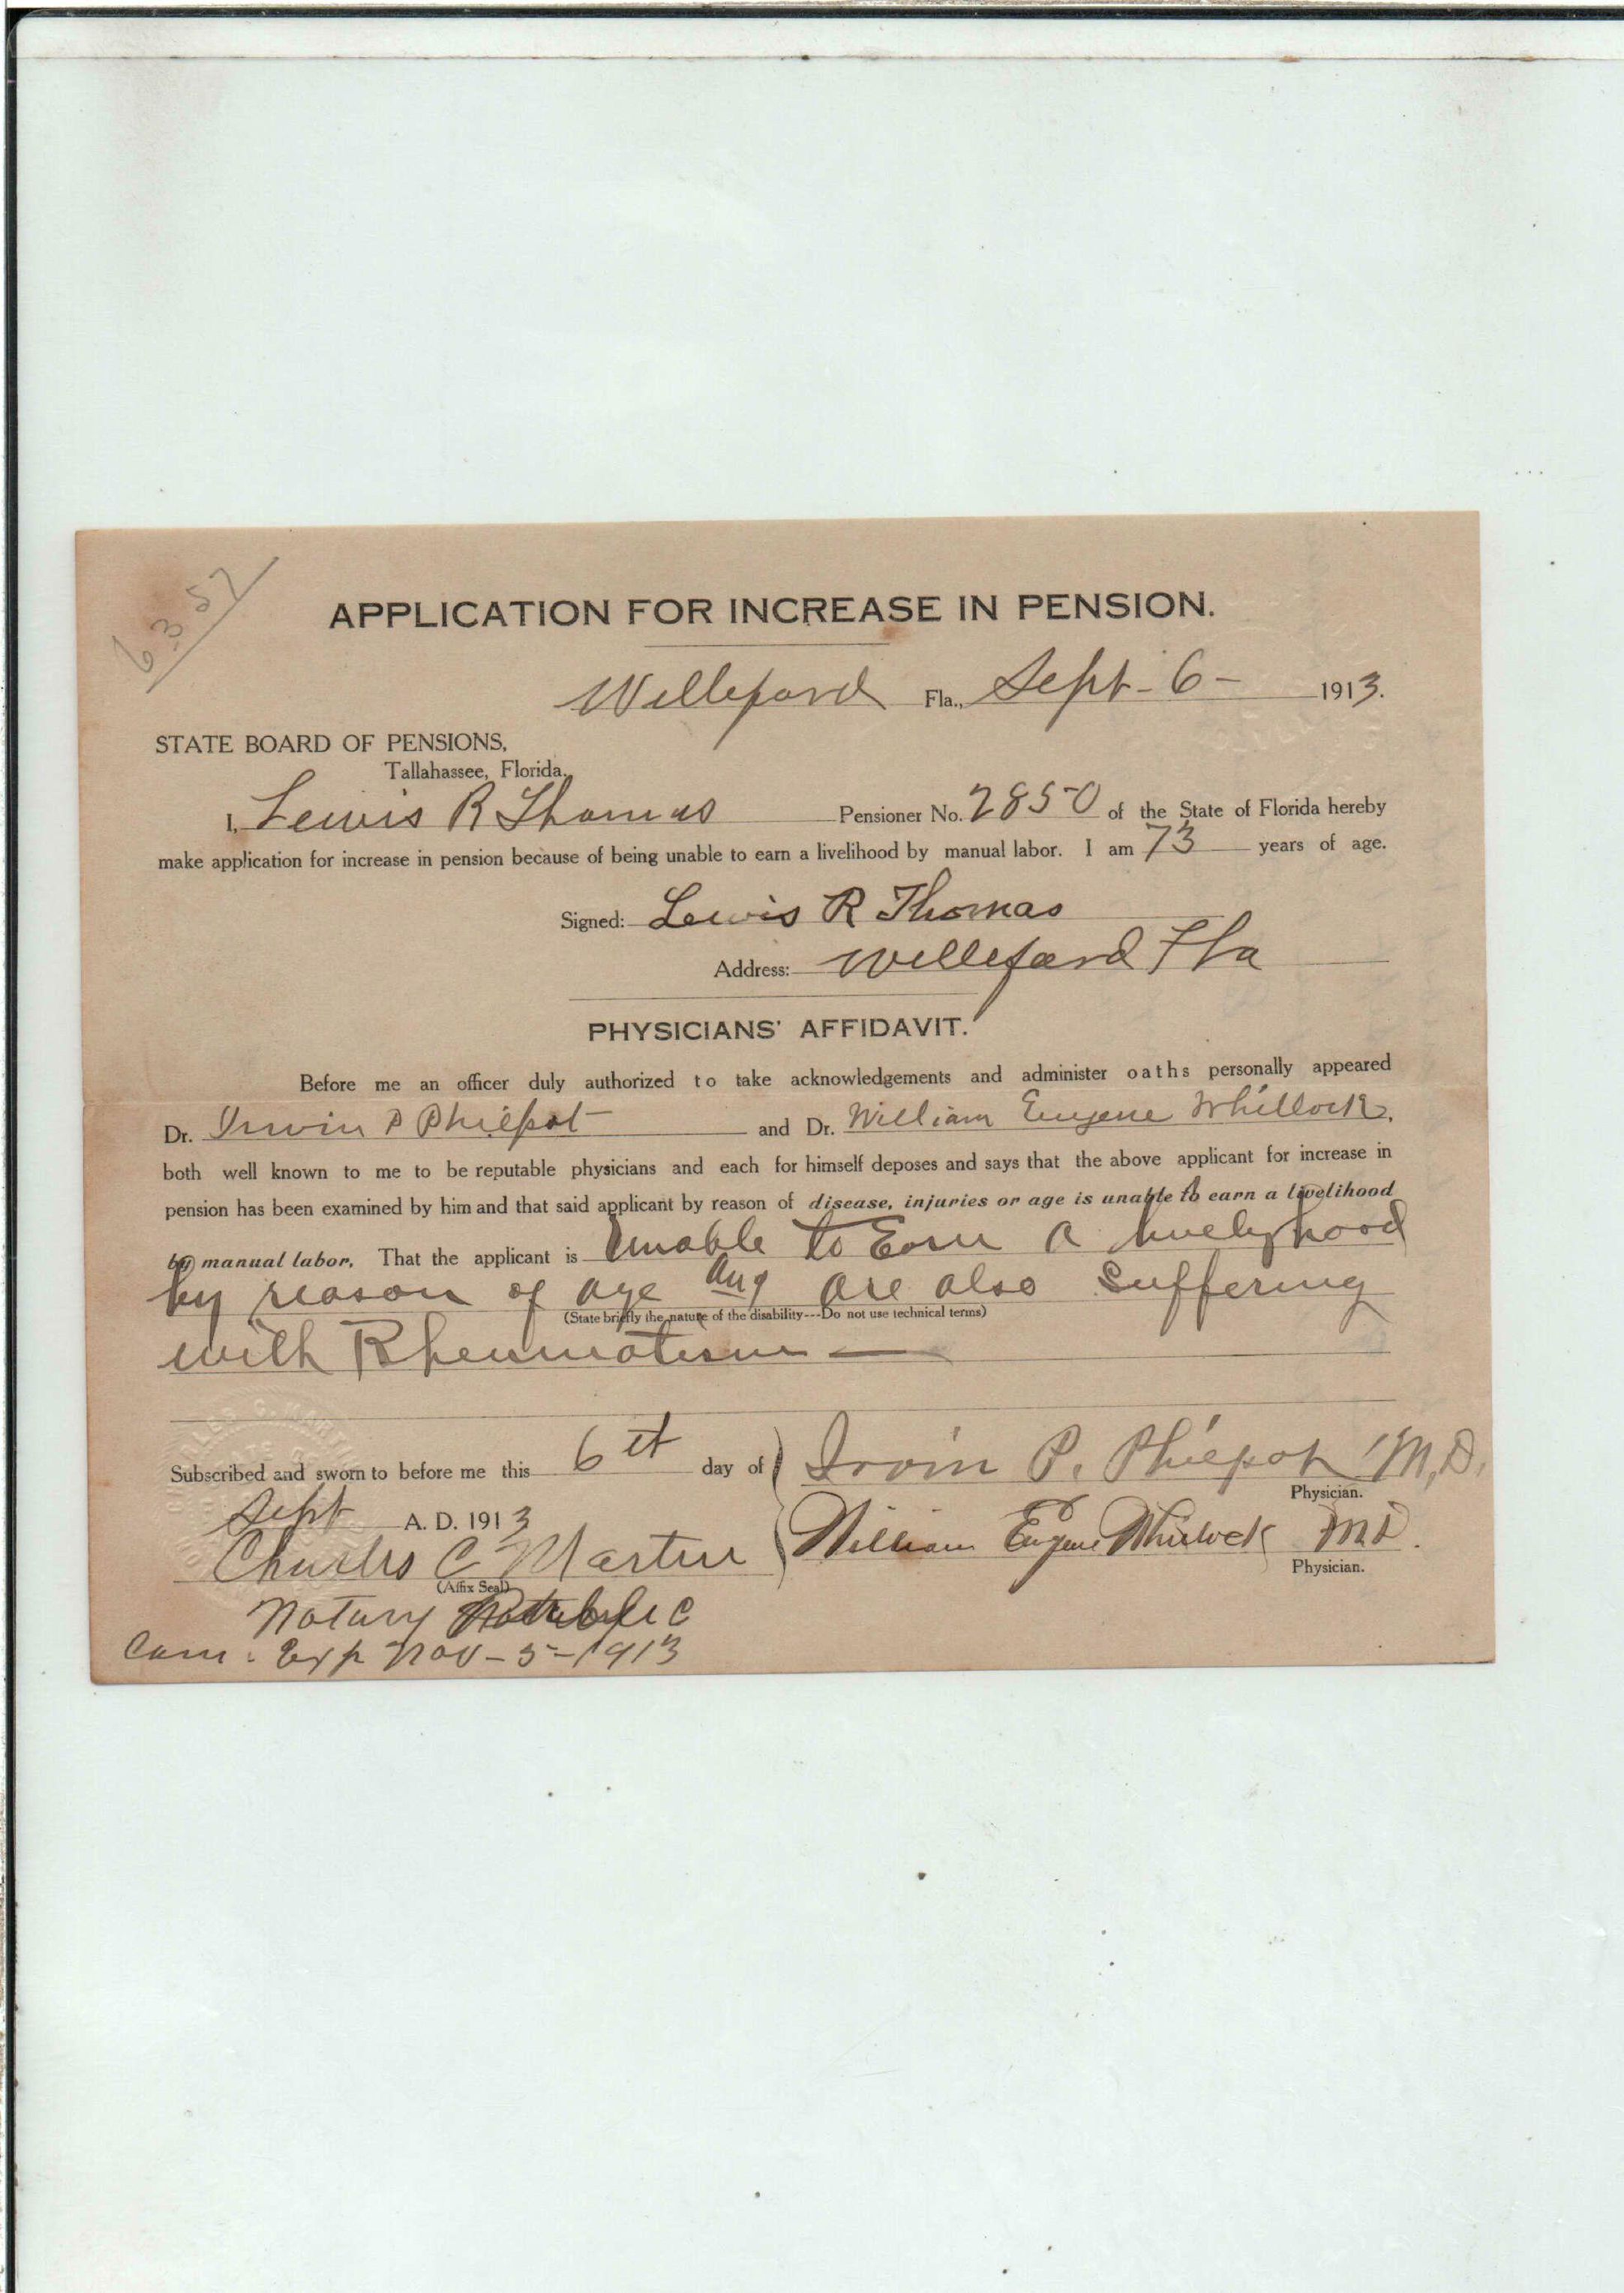 6357
APPLICATION FOR INCREASE IN PENSION.
Willeford Fla., Sept-6- 1913.
STATE BOARD OF PENSIONS,
Tallahassee, Florida.
I, Lewis R Thomas Pensioner No. 2850 of the State of Florida hereby
make application for increase in pension because of being unable to earn a livelihood by manual labor. I am 73 years of age.
Signed: Lewis R Thomas
Address: Willeford Fla
PHYSICIANS' AFFIDAVIT.
Before me an officer duly authorized to take acknowledgements and administer oaths personally appeared
Dr. Irwin P Philpot and Dr. William Eugene Whitlock,
both well known to me to be reputable physicians and each for himself deposes and says that the above applicant for increase in
pension has been examined by him and that said applicant by reason of disease, injuries or age is unable to earn a livelihood
by manual labor. That the applicant is Unable to Earn a livelyhood
by reason of age and are also Suffering
(State briefly the nature of the disability---Do not use technical terms)
with Rheumatism —
Subscribed and sworn to before me this 6th day of Irvin P. Philpot M.D.
Physician.
Sept A. D. 1913
William Eugene Whitlock M.D.
Physician.
Charles C Martin
(Affix Seal)
Notary Public
Com. Exp Nov-5-1913